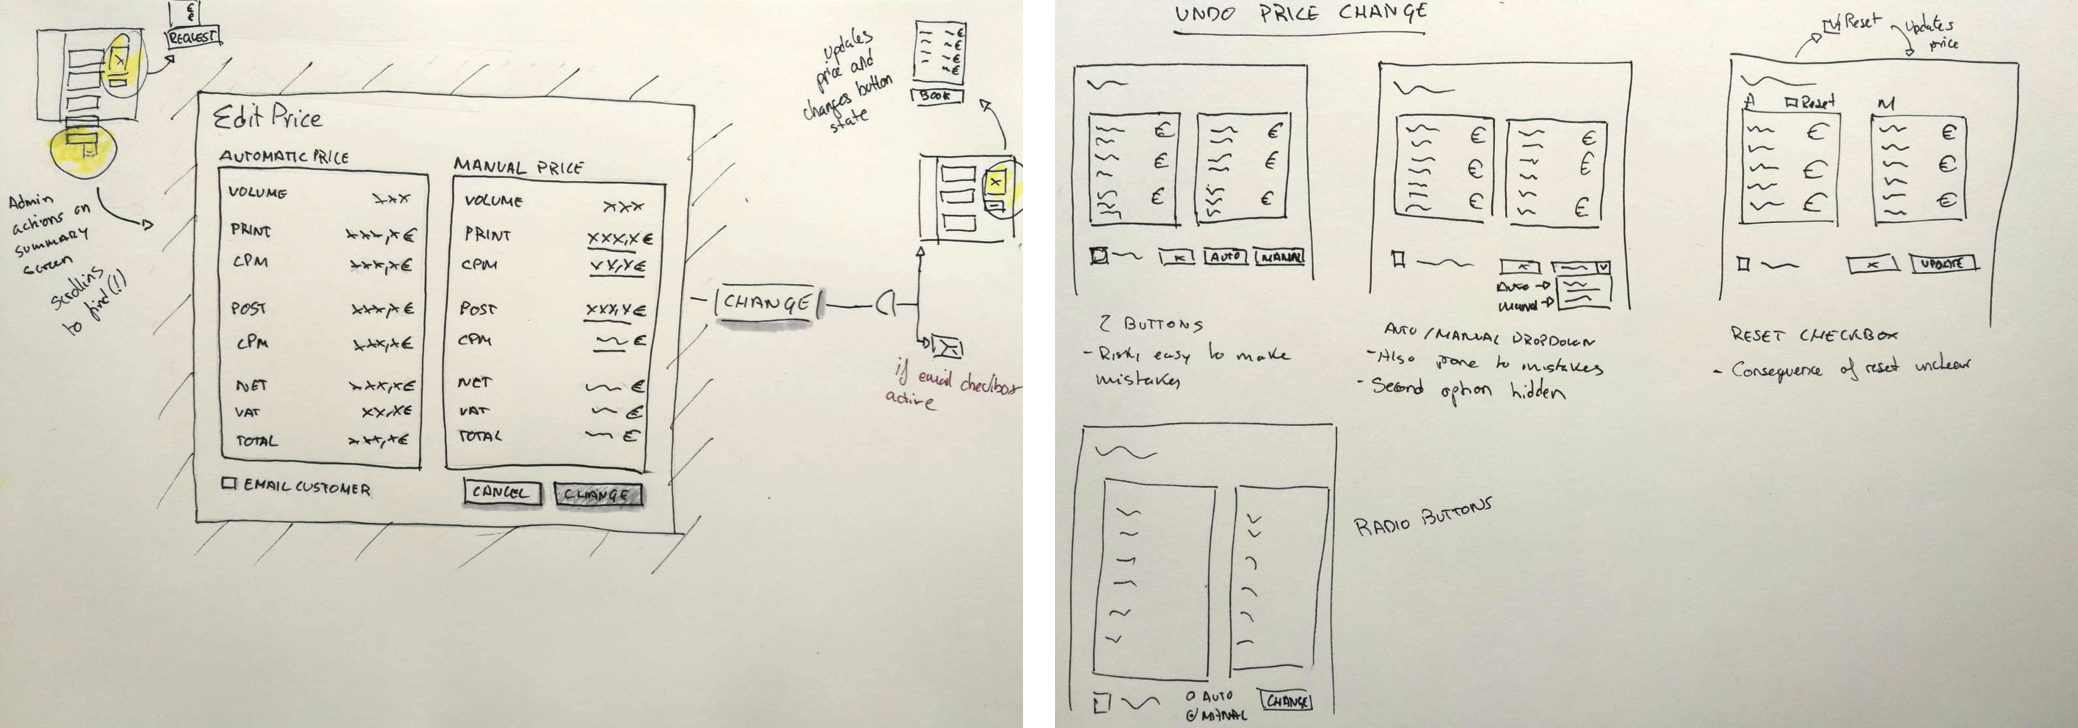 REQUEST
Admin
actions on
summary
screen
scrolling
to find(!)
Edit Price
AUTOMATIC PRICE
VOLUME xxx
PRINT xxx,x€
CPM xxx,x€
POST xxx,x€
CPM xxx,x€
NET xxx,x€
VAT xx,x€
TOTAL xxx,x€
MANUAL PRICE
VOLUME xxx
PRINT xxx,x€
CPM xx,x€
POST xxx,x€
CPM €
NET €
VAT €
TOTAL €
EMAIL CUSTOMER
CANCEL CHANGE
CHANGE
updates
price and
changes button
state
€
€
€
€
BOOK
X
if email checkbox
active
UNDO PRICE CHANGE
€ €
€ €
€ €
x AUTO MANUAL
2 BUTTONS
- Risk, easy to make
mistakes
€ €
€ €
€ €
x v
AUTO
Manual
AUTO/MANUAL DROPDOWN
- Also prone to mistakes
- Second option hidden
Reset
Updates
price
A Reset M
€ €
€ €
€ €
x UPDATE
RESET CHECKBOX
- Consequence of reset unclear
AUTO
MANUAL
CHANGE
RADIO BUTTONS